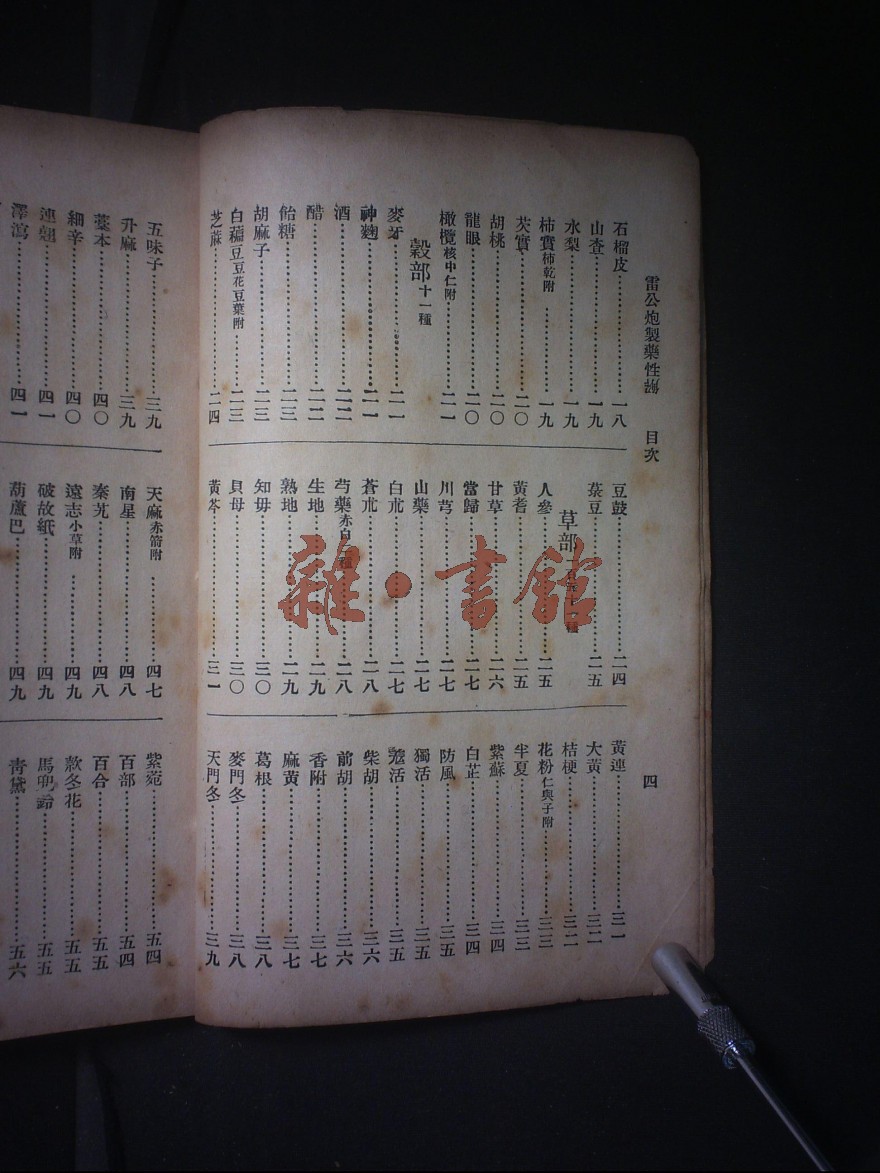 雷公炮製藥性詞 目次
四
石榴皮……一八
山查……一九
水梨……一九
柿實柿乾附……一九
芡實……二〇
胡桃……二〇
龍眼……二〇
橄欖核中仁附……二一
穀部十一種
麥芽……二一
神麯……二一
酒……二二
醋……二二
飴糖……二三
胡麻子……二三
白藊豆豆花豆葉附……二三
芝蔴……二四
豆鼓……二四
菉豆……二五
草部
人參……二五
黃耆……二五
甘草……二六
當歸……二七
川芎……二七
山藥……二七
白朮……二七
蒼朮……二八
芍藥赤白二種……二八
生地……二九
熟地……二九
知毋……三〇
貝母……三〇
黃岑……三一
黃連……三一
大黃……三二
桔梗……三二
花粉仁與子附……三三
半夏……三三
紫蘇……三四
白芷……三四
防風……三五
獨活……三五
羗活……三五
柴胡……三六
前胡……三六
香附……三七
麻黃……三七
葛根……三八
麥門冬……三八
天門冬……三九
五味子……三九
升麻……三九
藁本……四〇
細辛……四〇
連翹……四一
澤瀉……四一
天麻赤箭附……四七
南星……四八
秦艽……四八
遠志小草附……四九
破故紙……四九
葫蘆巴……四九
紫菀……五四
百部……五四
百合……五五
款冬花……五五
馬兜鈴……五五
靑黛……五六
雜·書館